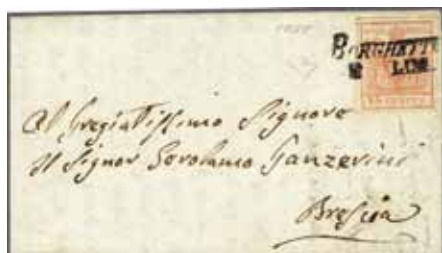 BORGHETTO
LUG.
15 CENTES
Al Pregiatissimo Signore
Il Signor Gerolamo Ganzerini
Brescia